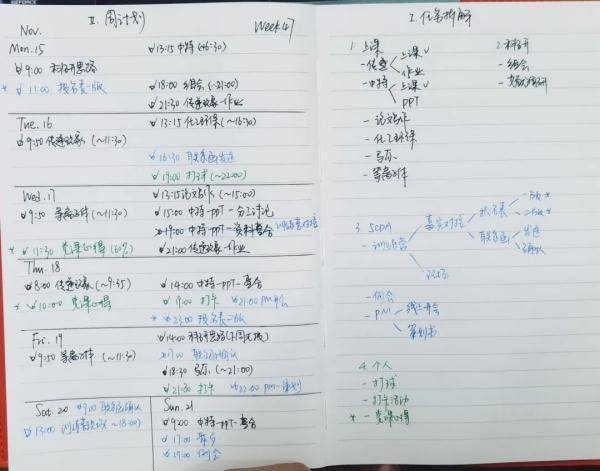 Nov.
II. 周计划
Week 47
Mon. 15
9:00 科研思路
11:00 报名表一版
13:15 中特 (~16:30)
18:00 组会 (~21:00)
21:30 传递现象-作业
Tue. 16
9:50 传递现象 (~11:30)
13:15 化工环保 (~16:30)
16:30 联系函发送
19:00 打球 (~22:00)
Wed. 17
9:50 (~11:30)
11:30 党课心得 (60%)
13:15 论文写作 (~15:00)
15:00 中特-PPT-分工讨论
19:00 中特-PPT-资料整合
21:00 传递现象-作业
Thu. 18
8:00 传递现象 (~9:35)
10:00 党课心得
14:00 中特-PPT-整合
19:00 打卡
21:00 PM开会
23:00 报名表一版
Fri. 19
9:50 (~11:30)
14:00 科研思路
17:00 联系函确认
18:30 马原 (~21:00)
21:30 打卡
22:00 PM-策划
Sat. 20
9:00 确认
13:00 (~18:00)
Sun. 21
9:00 中特-PPT-整合
17:00 聚会
19:00 例会
I. 任务拆解
1. 上课
- 传递
上课
作业
- 中特
上课
PPT
- 论文写作
- 化工环保
- 马原
2. 科研
- 组会
- 文献调研
3. SOPA
- 训练营
嘉宾对接
报名表
一版
二版
联系函
发送
确认
现场
- 例会
- PM
线上开会
策划书
4. 个人
- 打球
- 打卡活动
- 党课心得